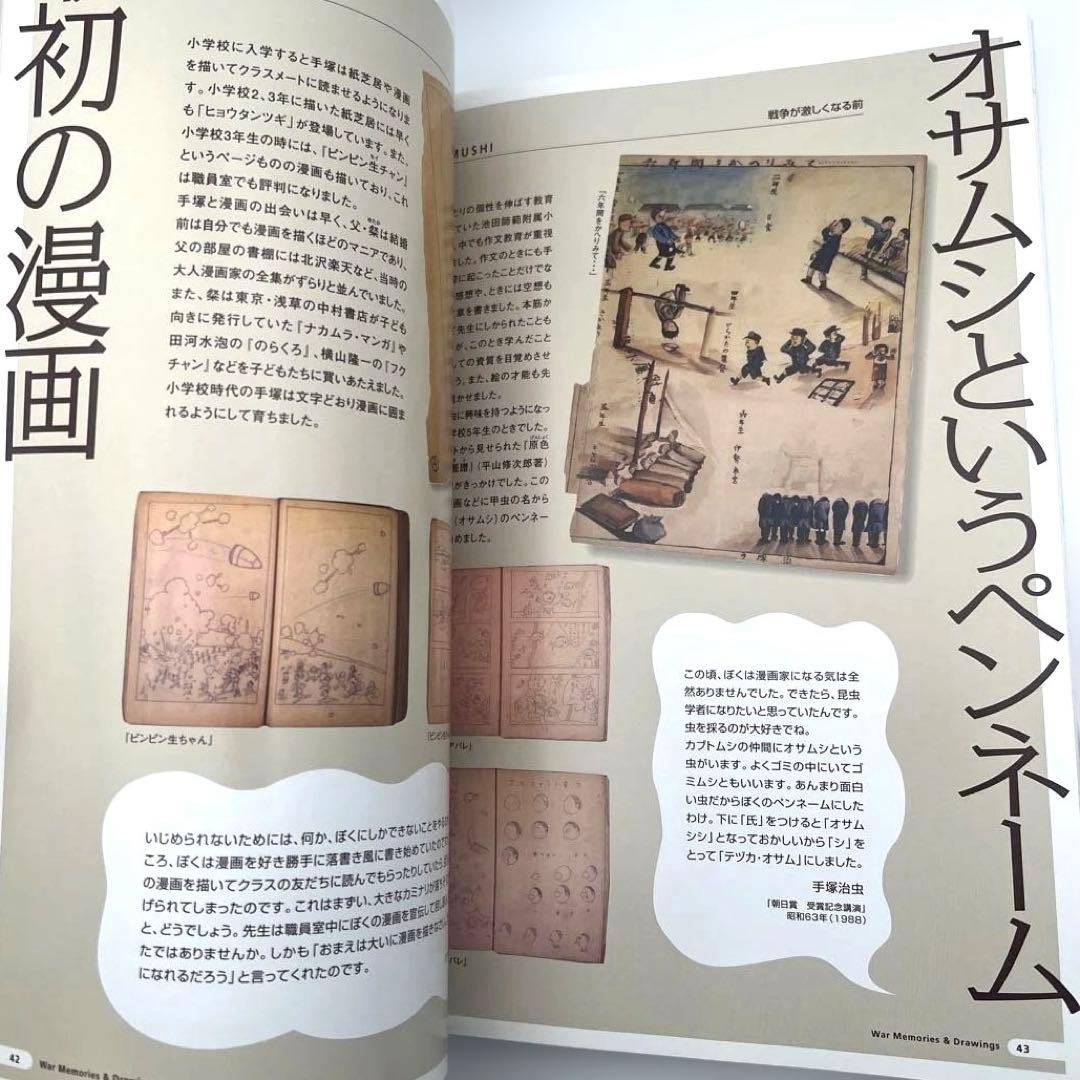 初の漫画
小学校に入学すると手塚は紙芝居や漫画
を描いてクラスメートに読ませるようになりま
す。小学校2、3年に描いた紙芝居には早く
も「ヒョウタンツギ」が登場しています。また、
小学校3年生の時には、「ピンピン生チャン」
というページものの漫画も描いており、これ
は職員室でも評判になりました。
手塚と漫画の出会いは早く、父・粲は結婚
前は自分でも漫画を描くほどのマニアであり、
父の部屋の書棚には北沢楽天など、当時の
大人漫画家の全集がずらりと並んでいました。
また、粲は東京・浅草の中村書店が子ども
向きに発行していた『ナカムラ・マンガ』や
田河水泡の『のらくろ』、横山隆一の『フク
チャン』などを子どもたちに買いあたえました。
小学校時代の手塚は文字どおり漫画に囲ま
れるようにして育ちました。
「ピンピン生ちゃん」
いじめられないためには、何か、ぼくにしかできないことをやる
ころ、ぼくは漫画を好き勝手に落書き風に書き始めていたので
の漫画を描いてクラスの友だちに読んでもらったりしていたら
げられてしまったのです。これはまずい、大きなカミナリが
と、どうでしょう。先生は職員室中にぼくの漫画を宣伝して
たではありませんか。しかも「おまえは大いに漫画を描きな
になれるだろう」と言ってくれたのです。
42
War Memories &
オサムシというペンネーム
戦争が激しくなる前
MUSHI
とりの個性を伸ばす教育
ていた池田師範附属小
、中でも作文教育が重視
ました。作文のときにも手
に起こったことだけでな
感想や、ときには空想も
章を書きました。本筋か
先生にしかられたことも
が、このとき学んだこと
ての資質を目覚めさせ
う。また、絵の才能も先
かせました。
に興味を持つようになっ
学校5年生のときでした。
トから見せられた『原色
譜』(平山修次郎著)
がきっかけでした。この
画などに甲虫の名から
(オサムシ)のペンネー
めました。
「六年間をかへりみて…」
六年間をかへりみて
四年生
六年生
伊勢参宮
五年生
この頃、ぼくは漫画家になる気は全
然ありませんでした。できたら、昆虫
学者になりたいと思っていたんです。
虫を採るのが大好きでね。
カブトムシの仲間にオサムシという
虫がいます。よくゴミの中にいてゴ
ミムシともいいます。あんまり面白
い虫だからぼくのペンネームにした
わけ。下に「氏」をつけると「オサム
シシ」となっておかしいから「シ」を
とって「テヅカ・オサム」にしました。
手塚治虫
「朝日賞 受賞記念講演」
昭和63年(1988)
War Memories & Drawings
43